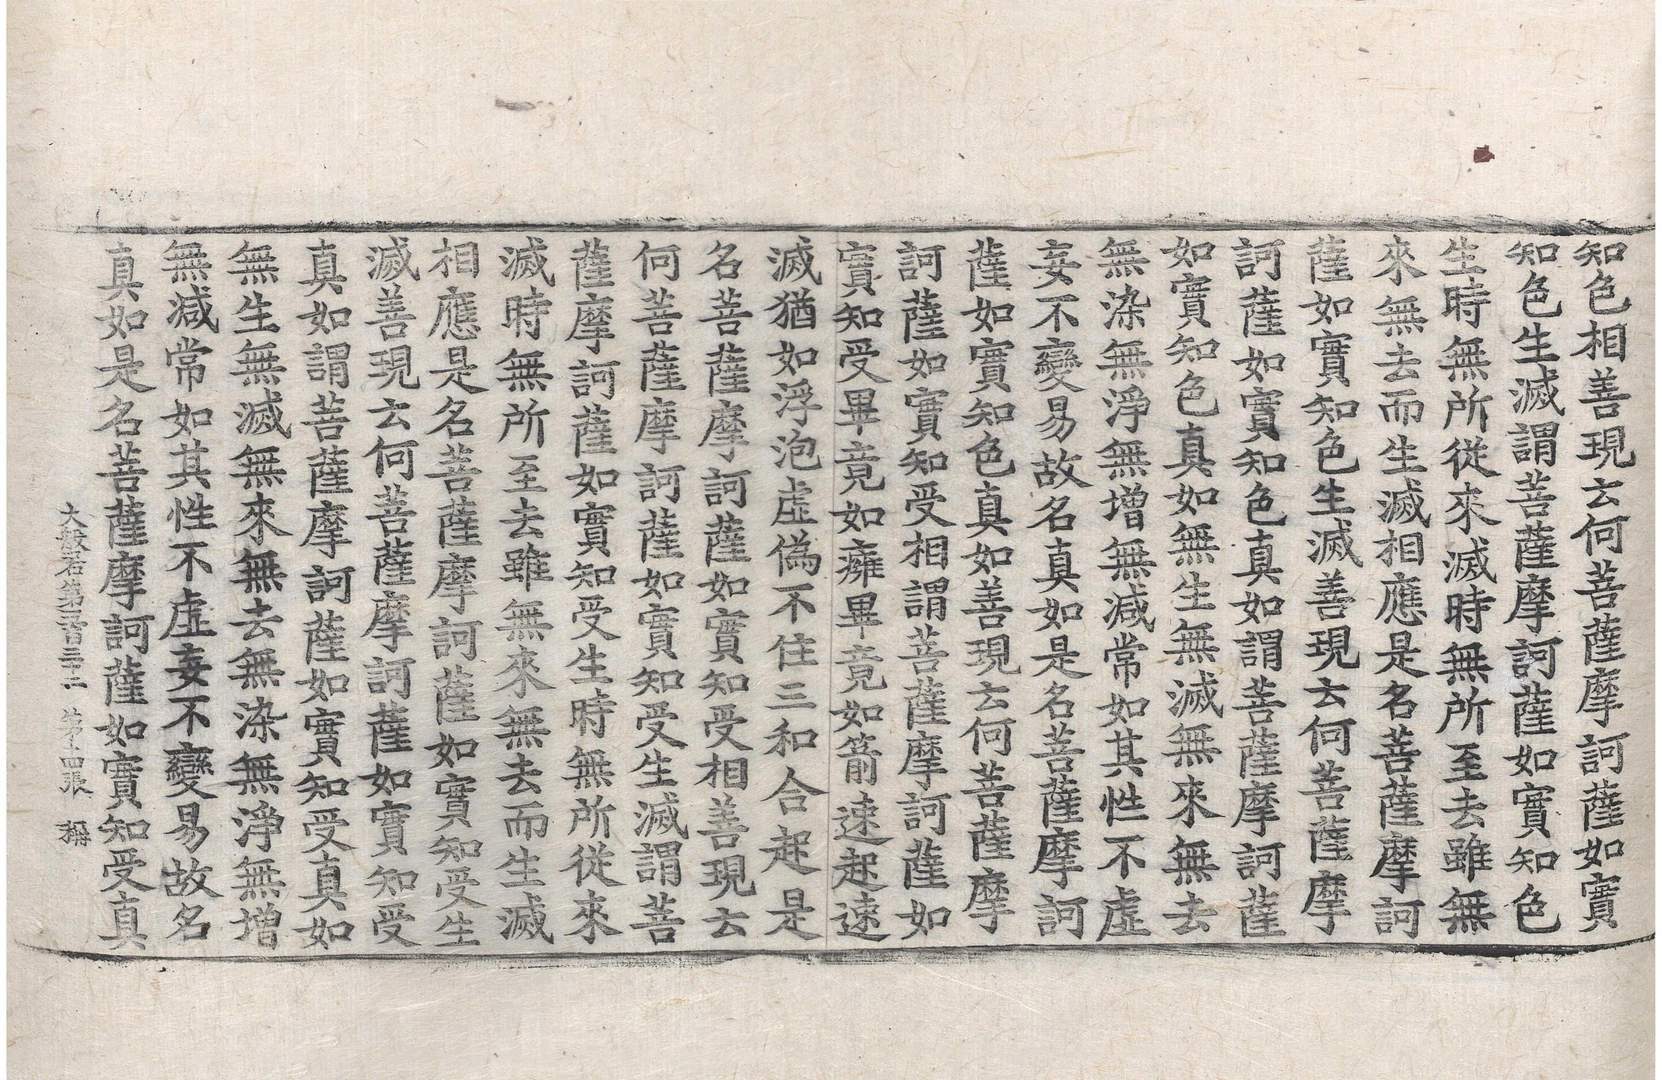 知色相善現云何菩薩摩訶薩如實
知色生滅謂菩薩摩訶薩如實知色
生時無所從來滅時無所至去雖無
來無去而生滅相應是名菩薩摩訶
薩如實知色生滅善現云何菩薩摩
訶薩如實知色真如謂菩薩摩訶薩
如實知色真如無生無滅無來無去
無染無淨無增無減常如其性不虛
妄不變易故名真如是名菩薩摩訶
薩如實知色真如善現云何菩薩摩
訶薩如實知受相謂菩薩摩訶薩如
實知受畢竟如癰畢竟如箭速起速
滅猶如浮泡虛偽不住三和合起是
名菩薩摩訶薩如實知受相善現云
何菩薩摩訶薩如實知受生滅謂菩
薩摩訶薩如實知受生時無所從來
滅時無所至去雖無來無去而生滅
相應是名菩薩摩訶薩如實知受生
滅善現云何菩薩摩訶薩如實知受
真如謂菩薩摩訶薩如實知受真如
無生無滅無來無去無染無淨無增
無減常如其性不虛妄不變易故名
真如是名菩薩摩訶薩如實知受真
大般若第五百三十二 第十四張 稱